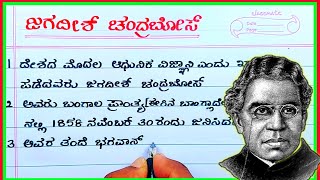 ಜಗದೀಶ್ ಚಂದ್ರಬೋಸ್
Date
Page
1. ದೇಶದ ಮೊದಲ ಆಧುನಿಕ ವಿಜ್ಞಾನಿ ಎಂದು
ಪಡೆದವರು ಜಗದೀಶ್ ಚಂದ್ರಬೋಸ್
2 ಅವರು ಬಂಗಾಲ ಪ್ರಾಂತ್ಯ
ನಲ್ಲಿ 1858 ನವೆಂಬರ್ ೩೦ ರಂದು ಜನಿಸಿದ
3. ಅವರ ತಂದೆ ಭಗವಾನ್